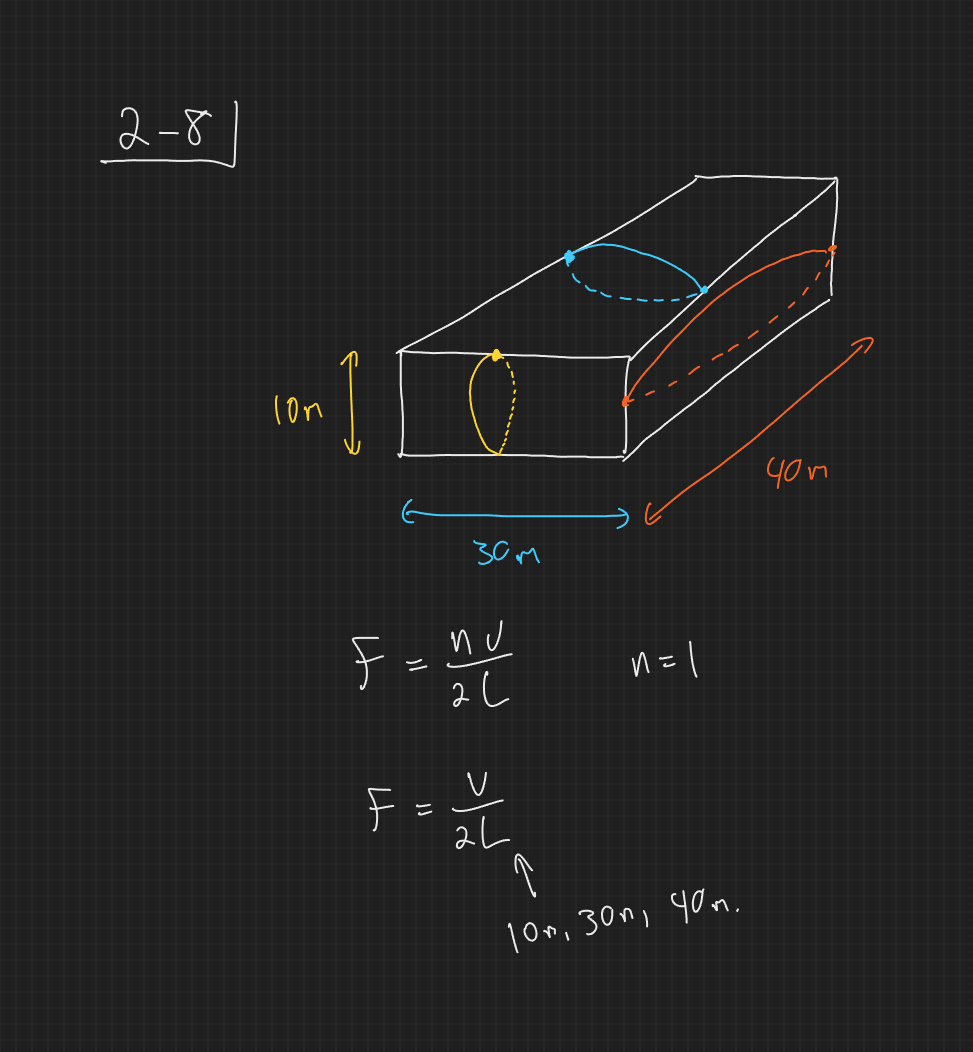 2-8
10m
30m
40m
F = nv/2L
n=1
F = v/2L
10m, 30m, 40m.